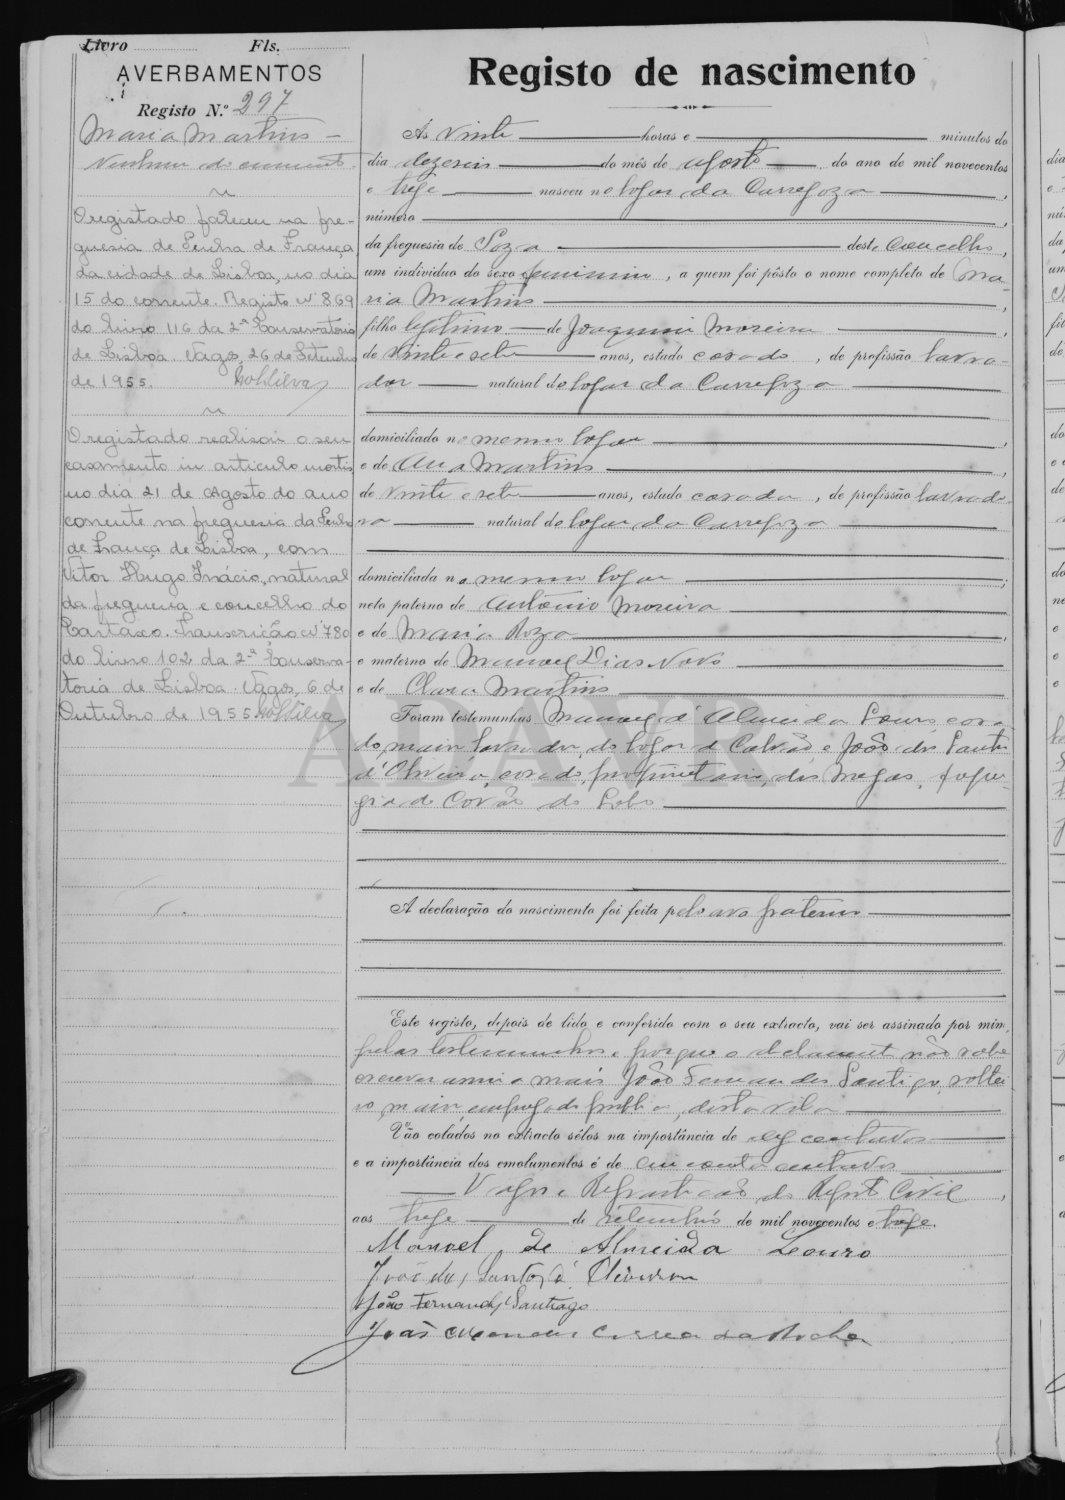 Livro Fls.
AVERBAMENTOS
Registo N.º 297
Maria Martins —
Nenhum documento
O registado faleceu na fre-
guesia de Penha de França
da cidade de Lisboa, no dia
15 do corrente. Registo nº 869
do livro 116 da 2ª Conservatoria
de Lisboa. Vagos, 26 de Setembro
de 1955.
O registado realisou o seu
casamento in articulo mortis
no dia 21 de Agosto do ano
corrente na freguesia da Penha
de França de Lisboa, com
Vitor Hugo Inácio, natural
da freguesia e concelho do
Cartaxo. Transcrição nº 780
do livro 102 da 2ª Conserva-
toria de Lisboa. Vagos, 6 de
Outubro de 1955.
Registo de nascimento
Ás vinte horas e minutos do
dia dezeseis do mês de agosto do ano de mil novecentos
e treze nasceu no logar da Carregoza,
número
da freguesia de Soza deste concelho,
um indivíduo do sexo feminino, a quem foi pôsto o nome completo de Ma-
ria Martins
filho legitimo de Joaquim Moreira
de vinte e sete anos, estado casado, de profissão lavra-
dor natural do logar da Carregoza
domiciliado no mesmo logar,
e de Ana Martins,
de vinte e sete anos, estado casada, de profissão lavrade-
ra natural do logar da Carregoza
domiciliada no mesmo logar;
neto paterno de António Moreira
e de Maria Roza,
e materno de Manoel Dias Novo
e de Clara Martins
Foram testemunhas Manoel d'Almeida Louro, casa-
do, maior, lavrador, do logar de Calvão e João dos Santos
d'Oliveira, casado, proprietario, das Megas, fregue-
zia de Covão do Lobo
A declaração do nascimento foi feita pelo avo paterno
Este registo, depois de lido e conferido com o seu extracto, vai ser assinado por mim,
pelas testemunhas e porque o declarante não sabe
escrever assina mais João Fernandes Santiago, soltei-
ro, maior, empregado publico, desta vila
Vão colados no extracto sêlos na importância de dez centavos
e a importância dos emolumentos é de cincoenta centavos
Vagos e Repartição do Registo Civil,
aos treze de setembro de mil novecentos e treze.
Manoel de Almeida Louro
João dos Santos d'Oliveira
João Fernandes Santiago
João Correa da Rocha
ADAVR